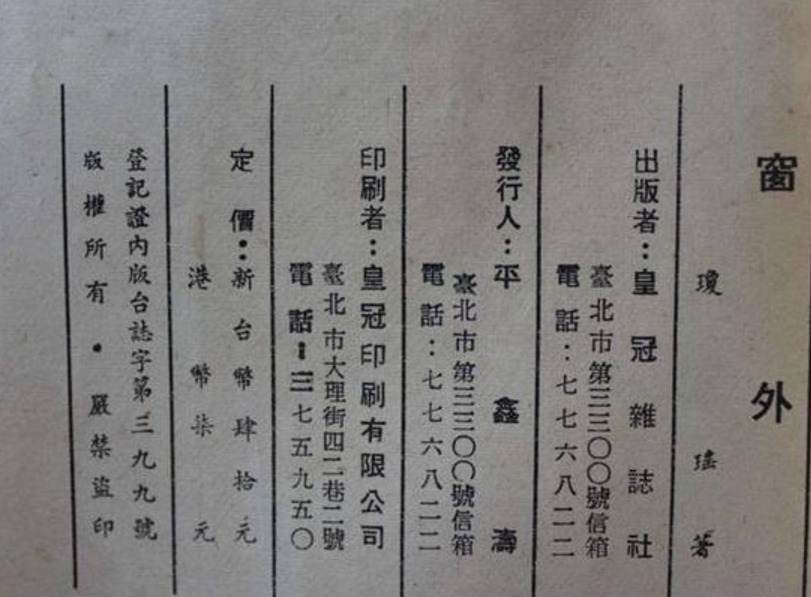 窗外
瓊瑤著
出版者：皇冠雜誌社
臺北市第三三〇〇號信箱
電話：七七六八二二
發行人：平鑫濤
臺北市第三三〇〇號信箱
電話：七七六八二二
印刷者：皇冠印刷有限公司
臺北市大理街四二巷二號
電話：三七五九五〇
定價：新台幣肆拾元
港幣柒元
登記證內版台誌字第三九九號
版權所有・嚴禁盜印